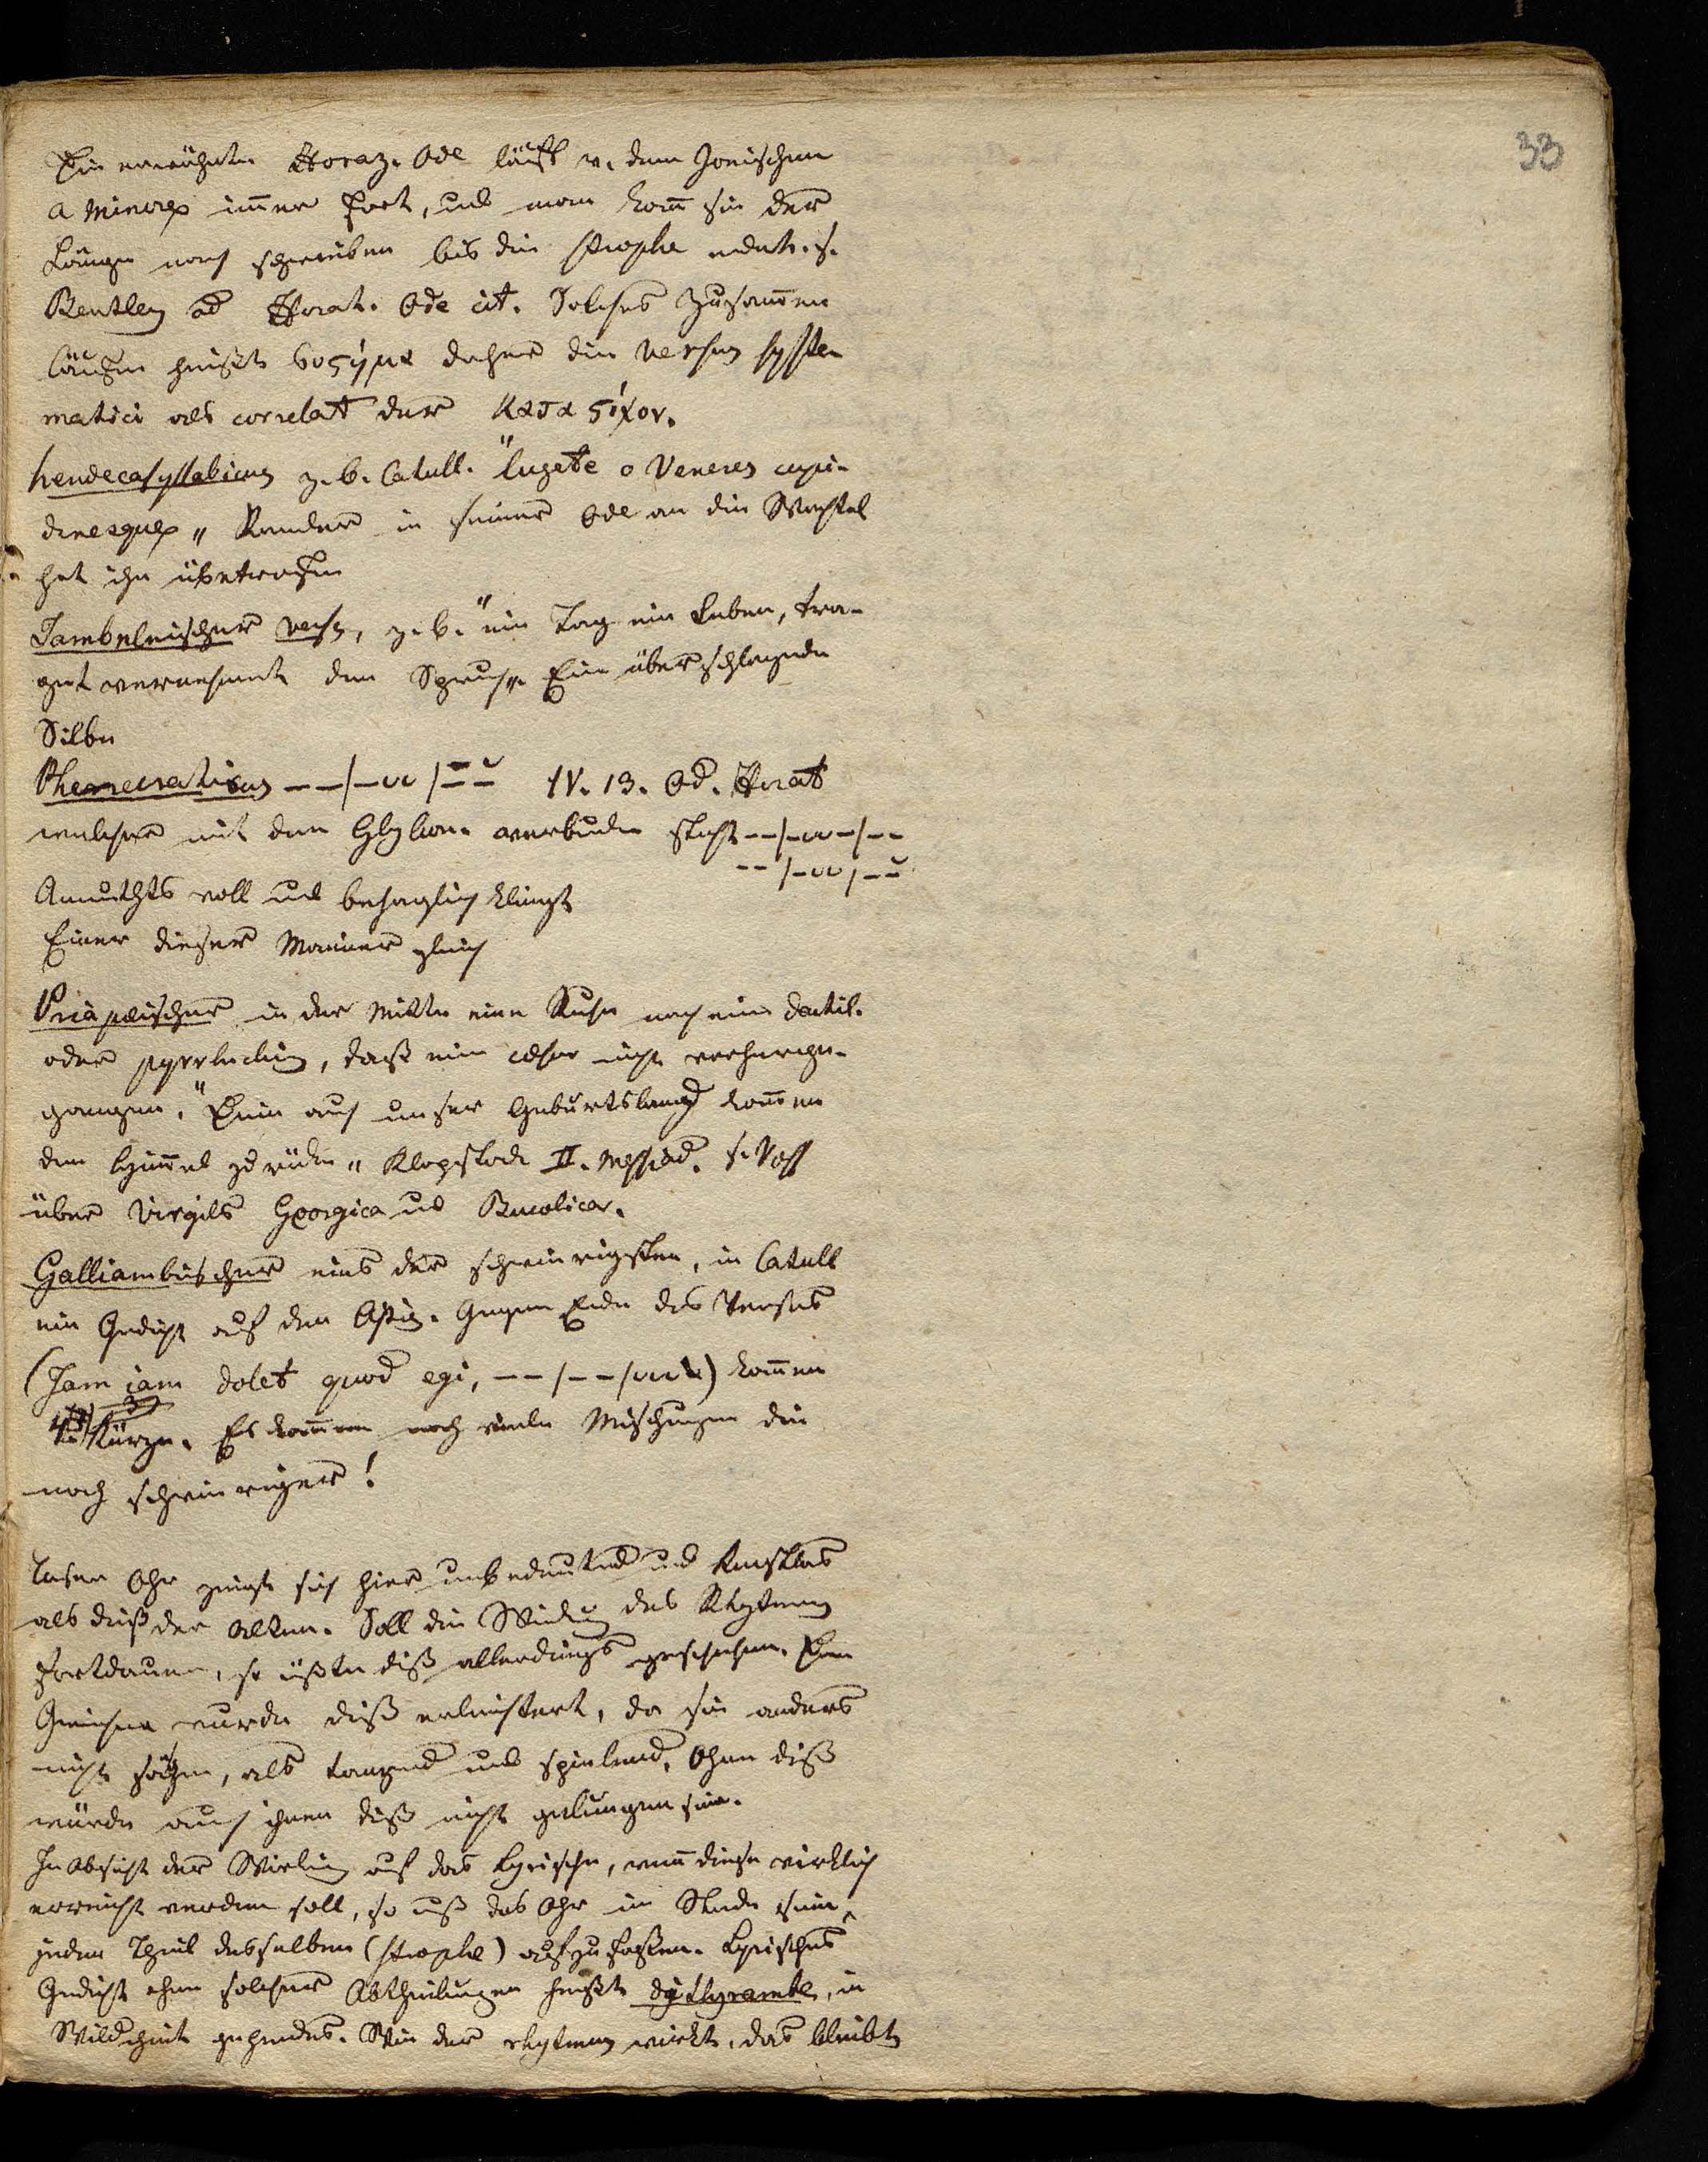 33
Die erwähnte Horaz. Ode läuft v. dem Jonischen
a minore immer fort, und man kann sie der
Länge nach schreiben bis die strophe endet. s.
Bentley ad Horat. Ode cit. Solches Zusammen
laufen heißt συςημα daher die versus syste-
matici als correlat der κατα ςίχον.
hendecasyllabicus z. b. Catull. "Lugete o Veneres cupi-
dinesque" Ramler in seiner Ode an die Wachtel
hat ihn übertroffen
Jambeleischer vers, z. b. "ein Tag ein Leben, tra-
get vernehmt den Spruch" Eine überschlagende
Silbe
Pherecraticus – – / – ᴗᴗ / – ᴗ IV. 13. Od. Horat
welcher mit dem Glykon. verbunden steht – – / – ᴗᴗ – / – –
– – / – ᴗᴗ / – ᴗ
Anmuthsvoll und behaglich klingt
Einer dieser Männer gleich
Priapeischer in der Mitte eine Ruhe nach ein dactil.
oder pyrrhichius, daß eine cäsur nicht vorherge-
gangen. "Ein auf unser Geburtsland kommen
den Himmel zurücke" Klopstock II. Messiad. s. Voss
über Virgils Georgica und Bucolica.
Galliambischer eins der schwierigsten, in Catull
ein Gedicht auf den Attis. Gegen Ende des Verses
(Jam iam dolet quod egi, – – / – – / ᴗᴗᴗ) kommen
Kürze. Es kommen noch viele Mischungen die
noch schwieriger!
Unser Ohr zeigt sich hier unbedeutend und kunstlos
als dieß der Alten. Soll die Wirkung des Rhytmus
fortdauern, so müßte diß allerdings geschehen. Den
Griechen wurde diß erleichtert, da sie anders
nicht sangen, als tanzend und spielend. Ohne diß
würde auch ihnen diß nicht gelungen sein.
In Absicht der Wirkung auf das Lyrische, wenn diese wirklich
erreicht werden soll, so muß das Ohr im Stande sein
jeden Theil desselben (strophe) aufzufaßen. Lyrisches
Gedicht ohne solcher Abtheilungen heißt dythyrambe, in
Wildheit gehendes. Wie der rhytmus wirkt, das bleibt